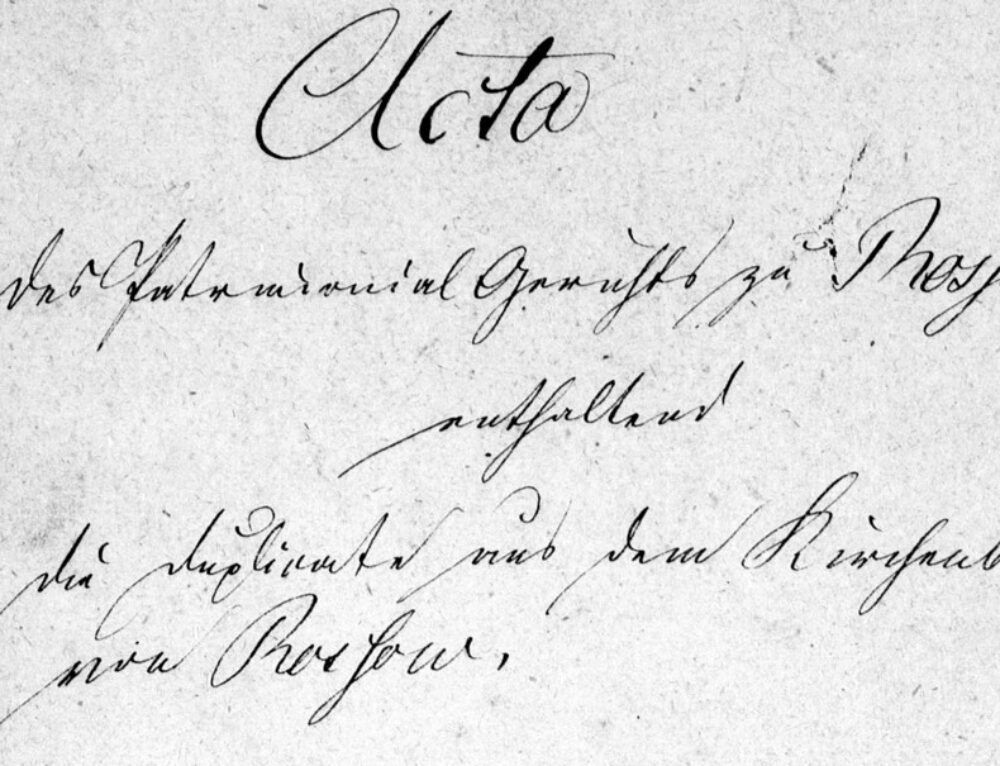 Acta
des Patrimonial Gerichts zu Rosc
enthaltend
die Duplicate aus dem Kirchenb
von Roschow.